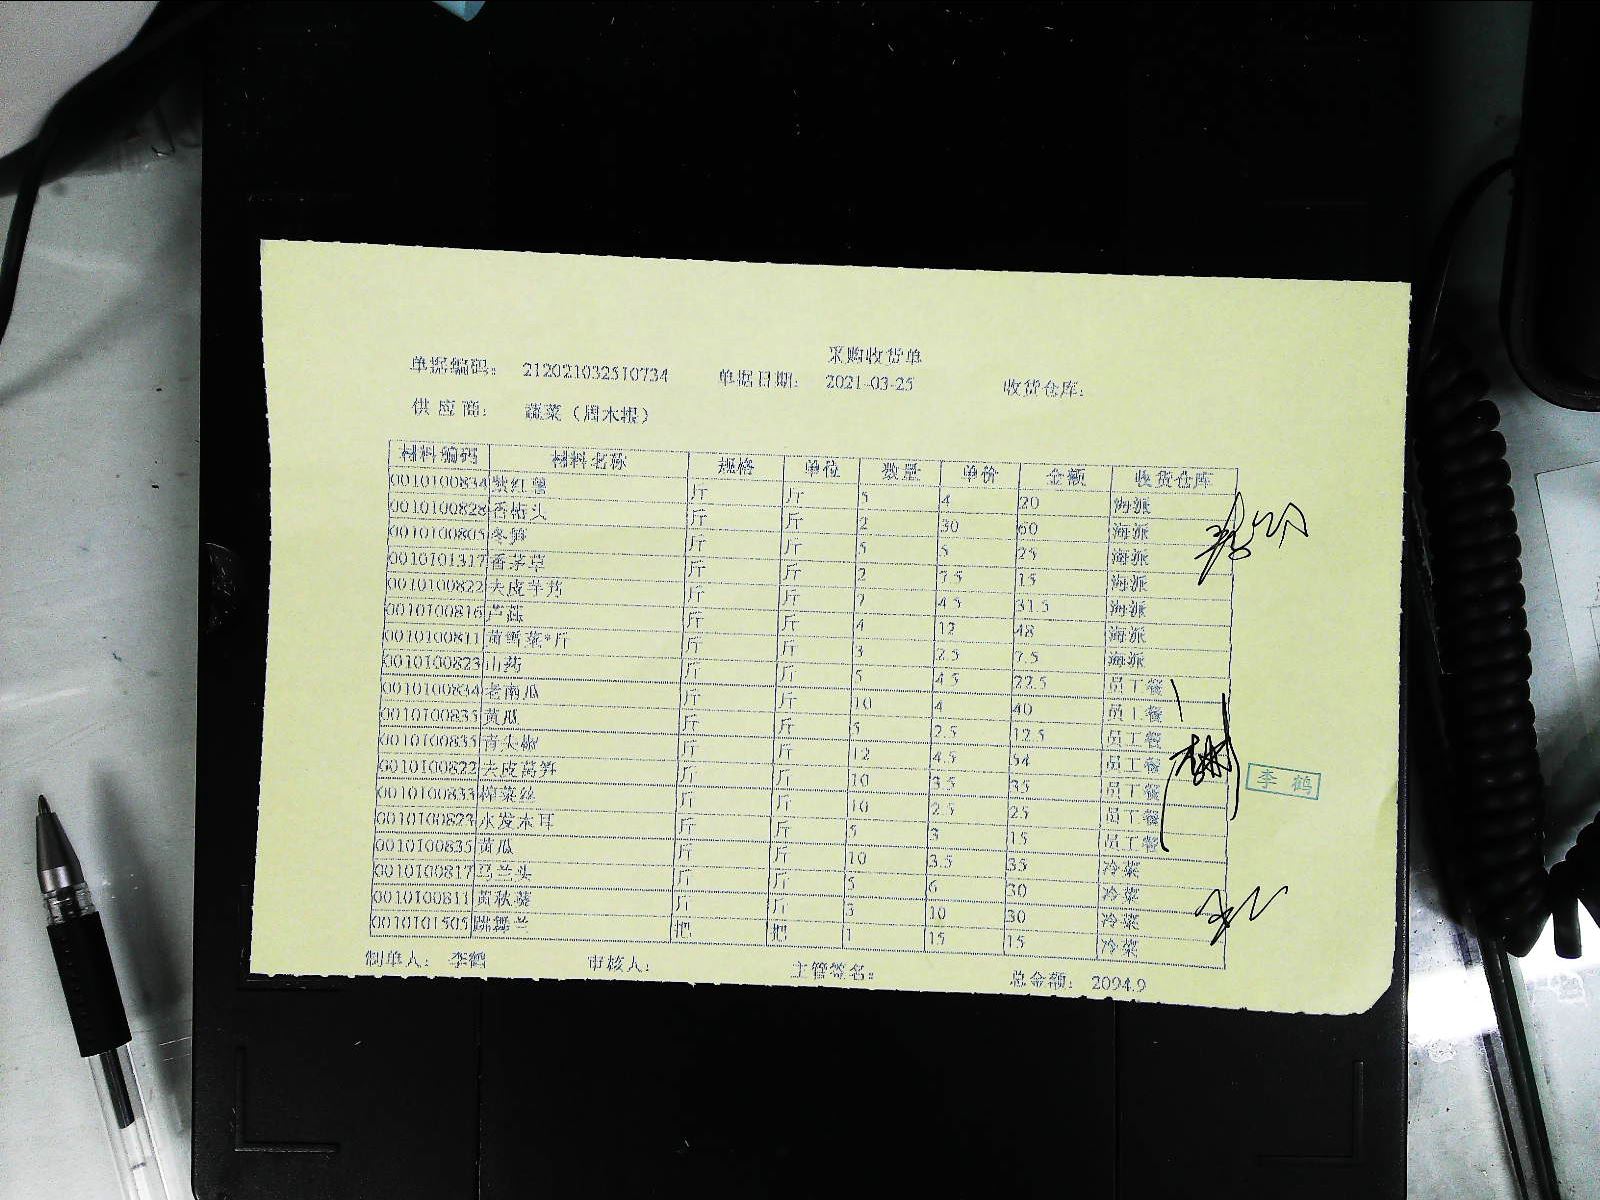 采购收货单
单据编码： 212021032510734 单据日期： 2021-03-25 收货仓库：
供 应 商： 蔬菜（周木根）
材料编码 材料名称 规格 单位 数量 单价 金额 收货仓库
0010100834 紫红薯 斤 斤 5 4 20 海派
0010100828 香菇头 斤 斤 2 30 60 海派
0010100805 冬笋 斤 斤 5 5 25 海派
0010101317 香茅草 斤 斤 2 7.5 15 海派
0010100822 去皮芋艿 斤 斤 7 4.5 31.5 海派
0010100816 芦蒿 斤 斤 4 12 48 海派
0010100811 斤 斤 3 2.5 7.5 海派
0010100823 山药 斤 斤 5 4.5 22.5 员工餐
0010100834 老南瓜 斤 斤 10 4 40 员工餐
0010100835 黄瓜 斤 斤 5 2.5 12.5 员工餐
0010100835 青头椒 斤 斤 12 4.5 54 员工餐
0010100822 去皮莴笋 斤 斤 10 3.5 35 员工餐
0010100833 榨菜丝 斤 斤 10 2.5 25 员工餐
0010100823 水发木耳 斤 斤 5 3 15 员工餐
0010100835 黄瓜 斤 斤 10 3.5 35 冷菜
0010100817 马兰头 斤 斤 5 6 30 冷菜
0010100811 黄秋葵 斤 斤 3 10 30 冷菜
0010101505 跳舞兰 把 把 1 15 15 冷菜
李鹤
制单人： 李鹤 审核人： 主管签名： 总金额： 2094.9